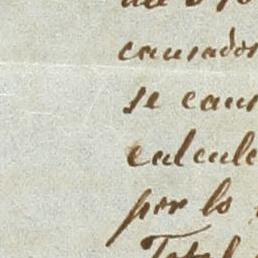 causador
se caus
calcule
por lo
Total